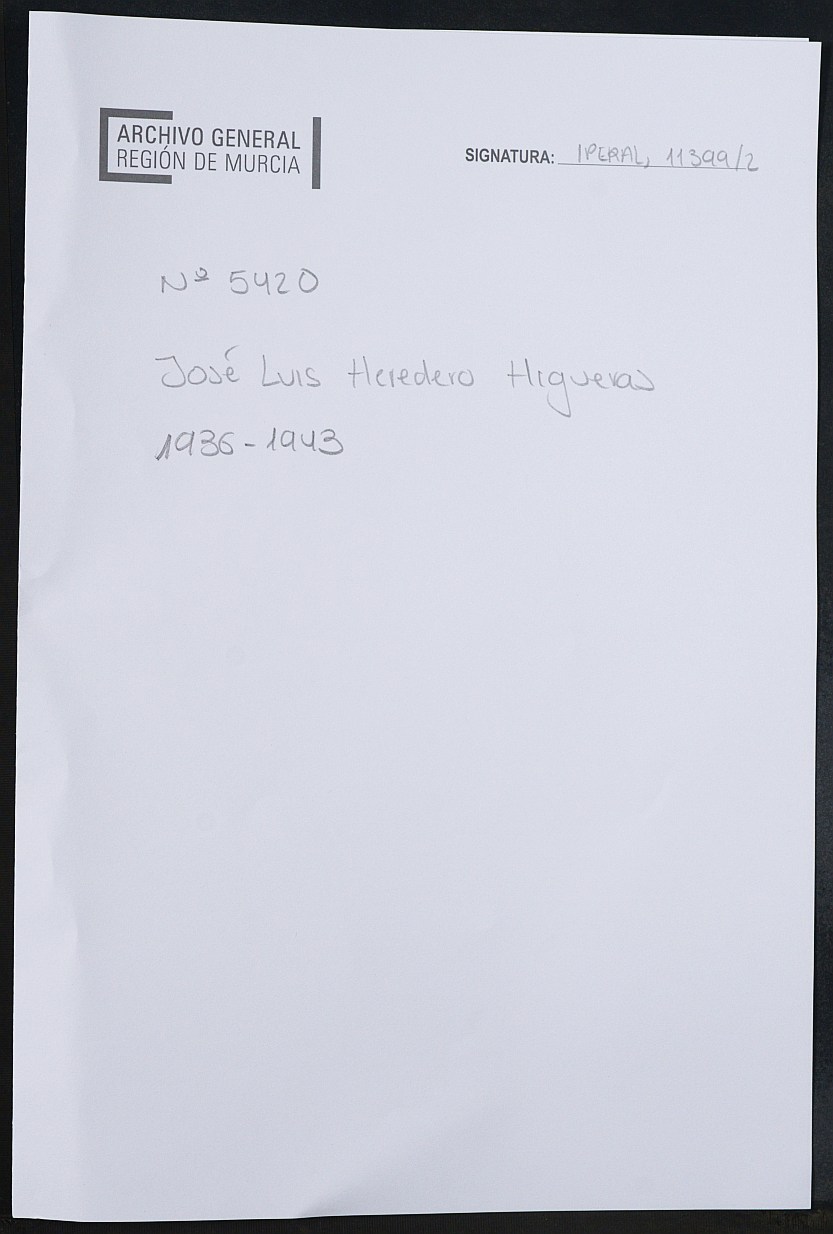 ARCHIVO GENERAL
REGIÓN DE MURCIA
SIGNATURA: IPERAL, 11399/2
Nº 5420
José Luis Heredero Higueras
1936-1943